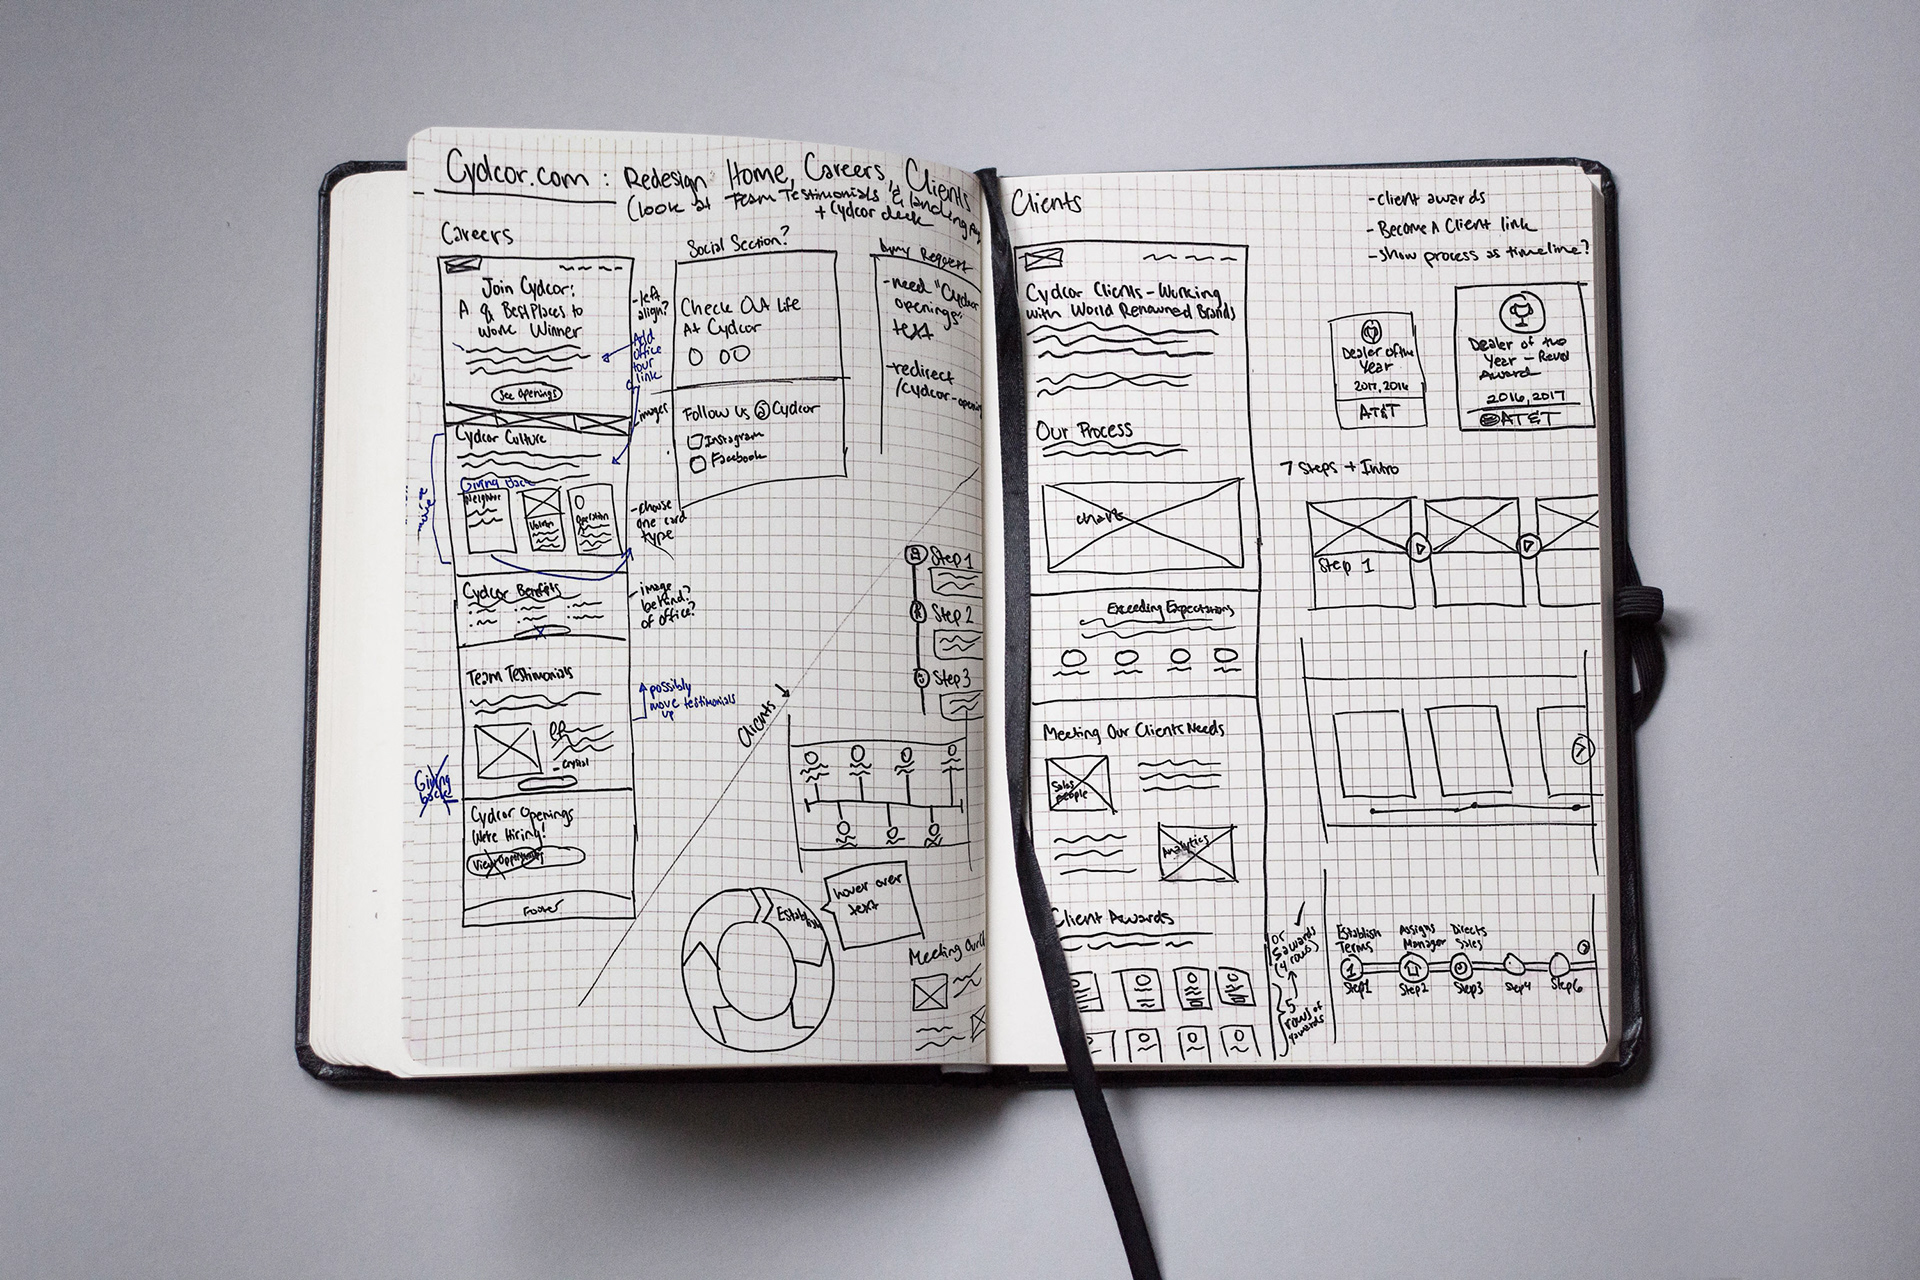 Cydcor.com : Redesign Home, Careers, Clients
(look at Team Testimonials & landing
+ Cydcor deck
Careers
Join Cydcor:
A & Best Places to
Work Winner
See Openings
Cydcor Culture
Giving Back
Neighbor
Operation
Cydcor Benefits
Team Testimonials
- Crystal
Cydcor Openings
We're Hiring!
View Opportunities
Footer
- left
align?
Add
office
tour
link
images
- choose
one card
type
- image
behind?
of office?
possibly
move testimonials
up
move
Giving
back
Social Section?
Check Out Life
At Cydcor
Follow Us @ Cydcor
Instagram
Facebook
Request
- need "Cydcor
openings"
text
- redirect
/cydcor-openings
Step 1
Step 2
Step 3
Clients
Establish
hover over
text
Meeting Our Cl
Clients
- client awards
- Become A Client link
- show process as timeline?
Cydcor Clients - Working
with World Renowned Brands
Our Process
chart
Exceeding Expectations
Meeting Our Clients Needs
Sales
people
Analytics
Client Awards
or
5 awards
(4 rows)
5
rows of
4 awards
Dealer of the
Year
2017, 2016
AT&T
Dealer of the
Year - Revel
Award
2016, 2017
AT&T
7 Steps + Intro
Step 1
Establish
Terms
Assigns
Manager
Directs
Sales
1
Step 1
Step 2
Step 3
Step 4
Step 6